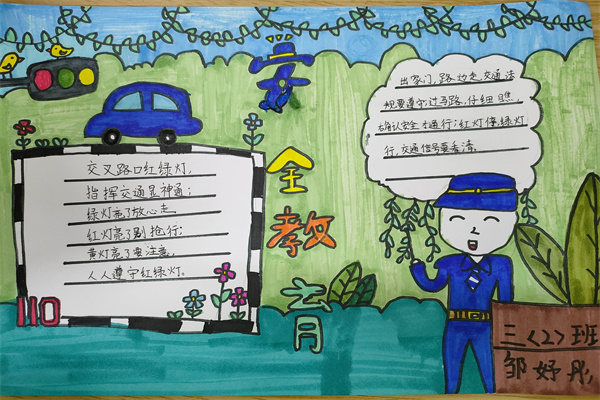 安全教育
交叉路口红绿灯,
指挥交通显神通;
绿灯亮了放心走,
红灯亮了别抢行;
黄灯亮了要注意,
人人遵守红绿灯。
110
出家门,路边走,交通法
规要遵守;过马路,仔细瞧,
确认安全才通行;红灯停,绿灯
行,交通信号要看清。
三〈2〉班
邹妤彤